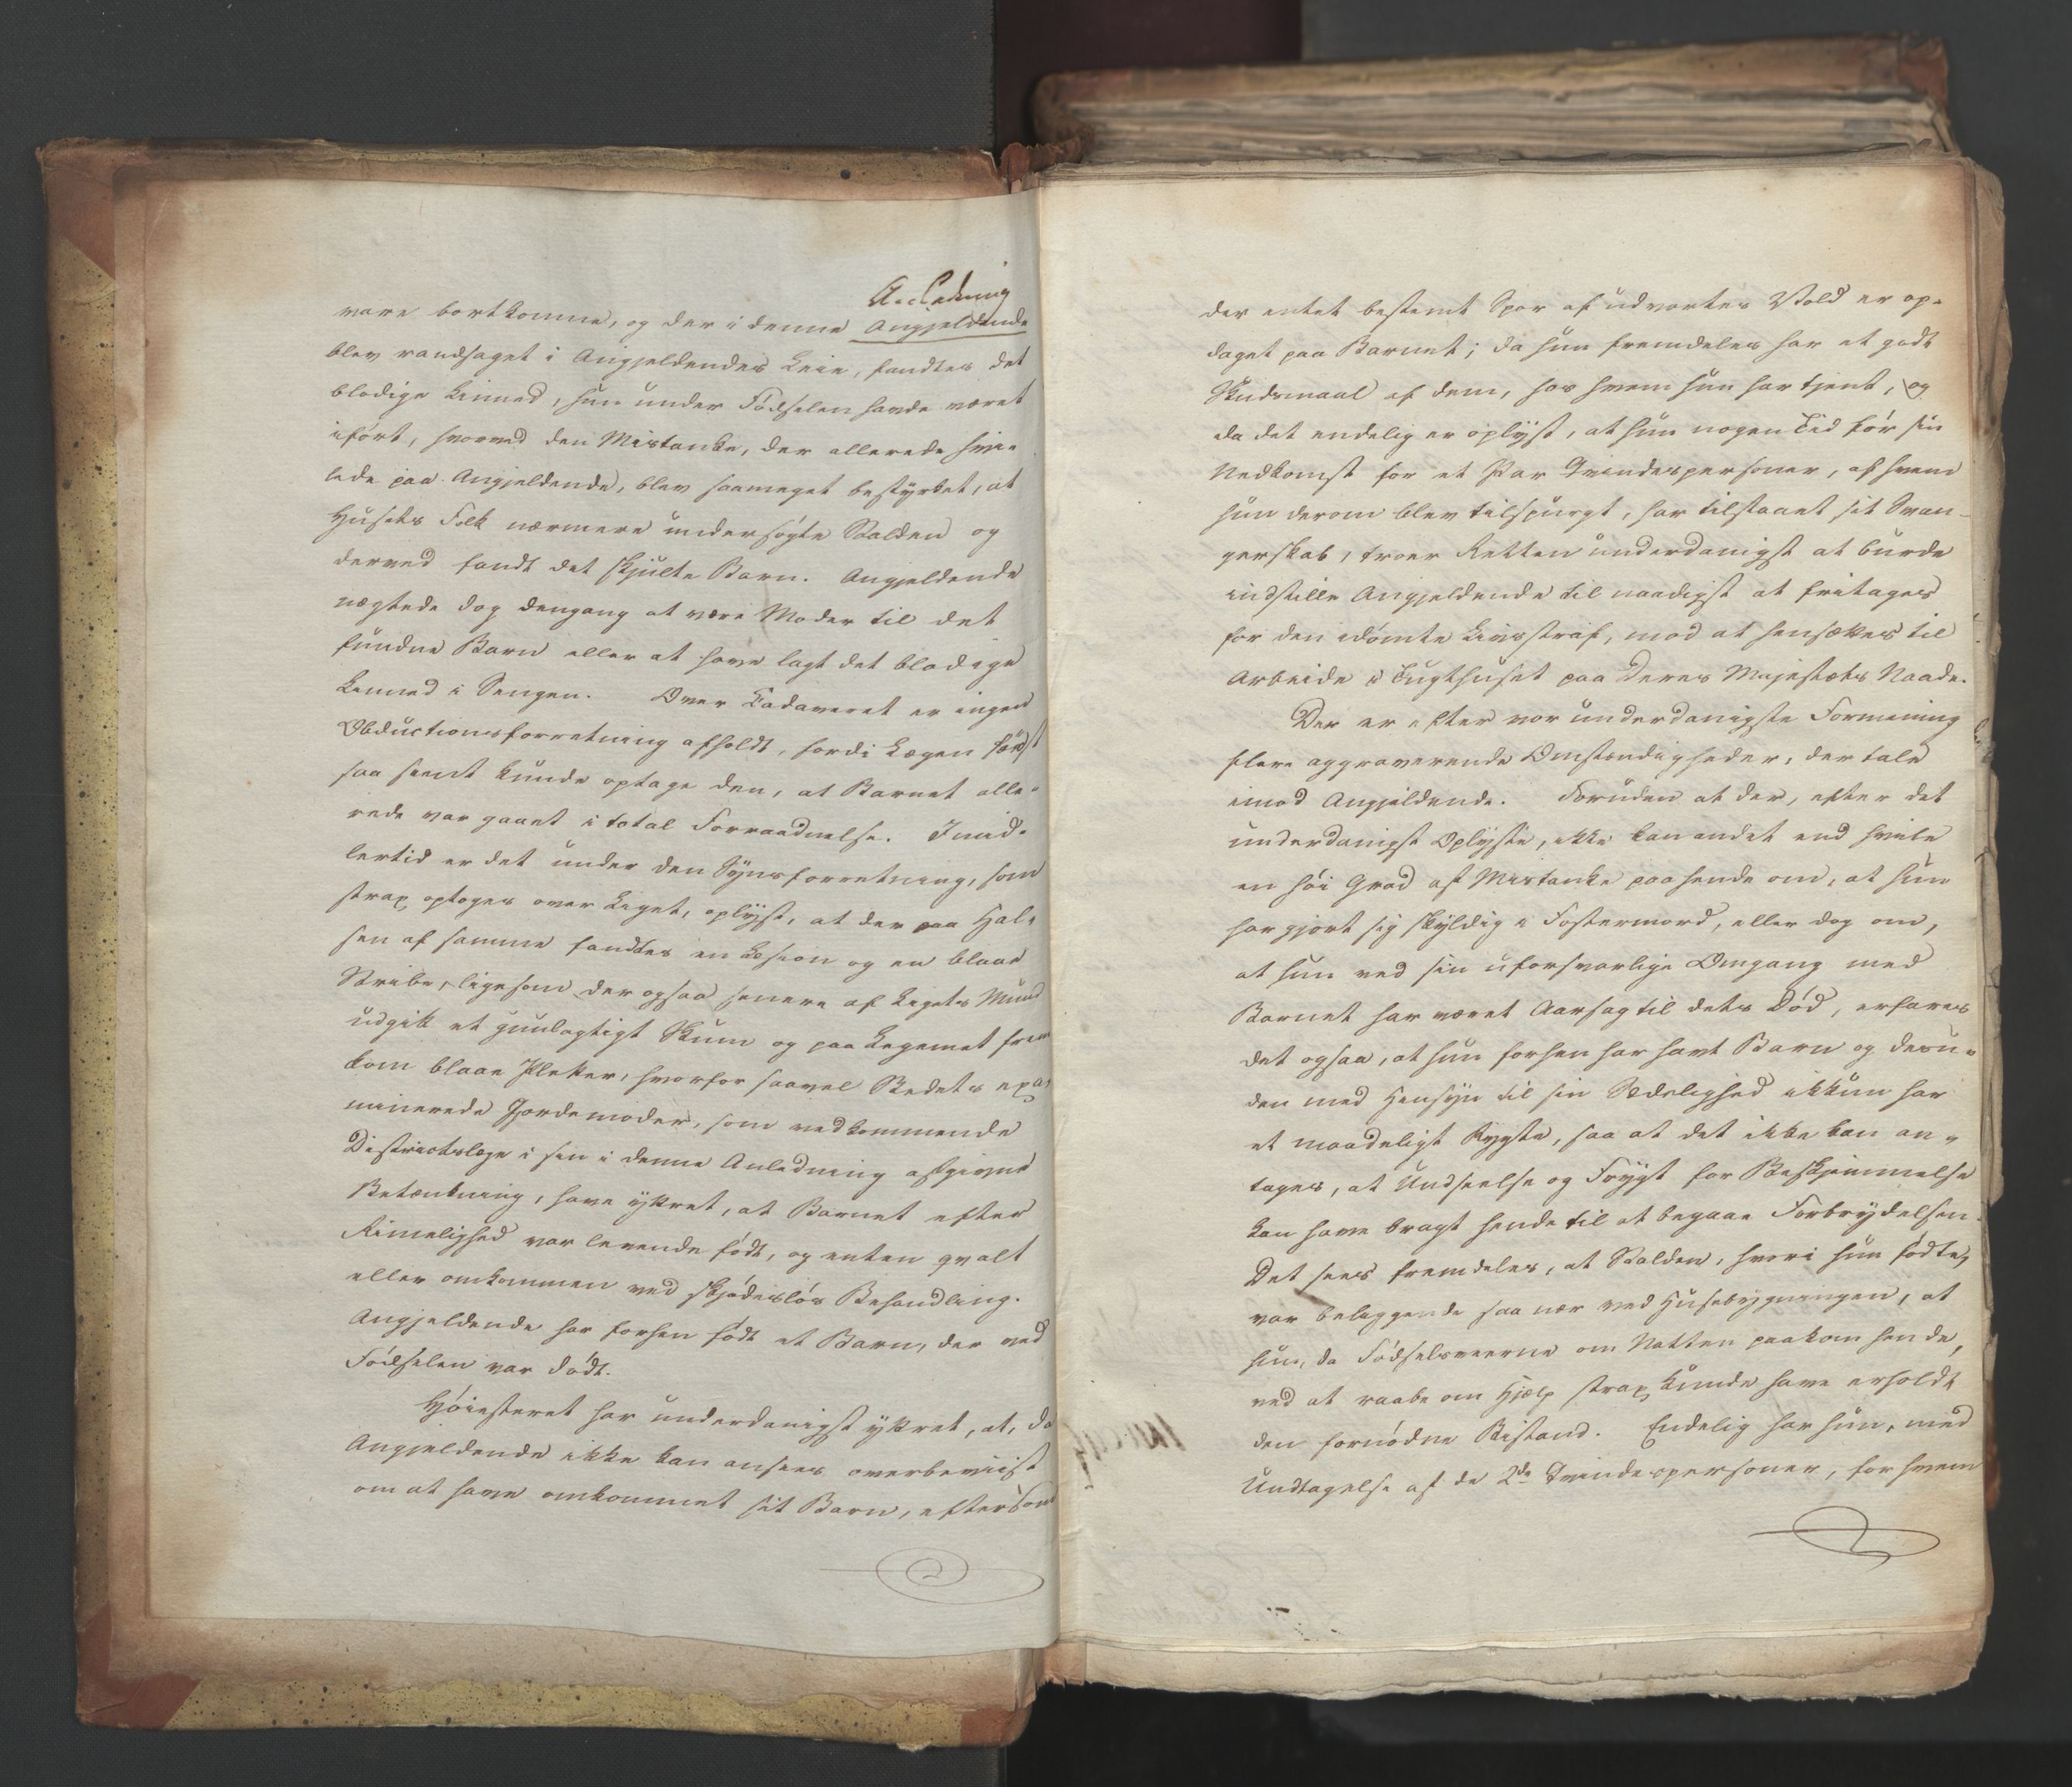 Anledning
vare bortkomne, og der i denne Angjeldende
blev randsaget i Angjeldendes Leie, fandtes det
blodige Linned, hun under Födselen havde været
ifört, hvorved den Mistanke, der allerede hvi-
lede paa Angjeldende, blev saameget bestyrket, at
Husets Folk nærmere undersögte Stalden og
derved fandt det skjulte Barn. Angjeldende
nægtede dog dengang at være Moder til det
fundne Barn eller at have lagt det blodige
Linned i Sengen. Over Cadaveret er ingen
Obductionsforretning afholdt, fordi Lægen först
saa seent kunde optage den, at Barnet alle-
rede var gaaet i total Forraadnelse. Imid-
lertid er det under den Synsforretning, som
strax optoges over Liget, oplyst, at der paa Hal-
sen af samme fandtes en Læsion og en blaae
Stribe, ligesom der ogsaa senere af Ligets Mund
udgik et guulagtigt Skum og paa Legemet frem
kom blaae Pletter, hvorfor saavel Stedets exa-
minerede Jordemoder, som vedkommende
Districtslæge i sin i denne Anledning afgivne
Betænkning, have yttret, at Barnet efter
Rimelighed var levende födt, og enten qvalt
eller omkommen ved skjödeslös Behandling.
Angjeldende har forhen födt et Barn, der ved
Födselen var dödt.
Höiesteret har underdanigst yttret, at, da
Angjeldende ikke kan ansees overbeviist
om at have omkommet sit Barn, eftersom
der intet bestemt Spor af udvortes Vold er op-
daget paa Barnet; da hun fremdeles har et godt
Skudsmaal af dem, hos hvem hun har tjent, og
da det endelig er oplyst, at hun nogen Tid för sin
Nedkomst for et Par Qvindespersoner, af hvem
hun derom blev tilspurgt, har tilstaaet sit Svan-
gerskab, troer Retten underdanigst at burde
indstille Angjeldende til naadigst at fritages
for den idömte Livsstraf, mod at hensættes til
Arbeide i Tugthuset paa Deres Majestæts Naade.
Der er efter vor underdanigste Formening
flere aggraverende Omstændigheder, der tale
imod Angjeldende. Foruden at der, efter det
underdanigst Oplyste, ikke kan andet end hvile
en höi Grad af Mistanke paa hende om, at hun
har gjort sig skyldig i Fostermord, eller dog om,
at hun ved sin uforsvarlige Omgang med
Barnet har været Aarsag til dets Död, erfares
det ogsaa, at hun forhen har havt Barn og desu-
den med Hensyn til sin Sædelighed ikkun har
et maadeligt Rygte, saa at det ikke kan an-
tages, at Undseelse og Frygt for Beskjæmmelse
kan have bragt hende til at begaae Forbrydelsen.
Det sees fremdeles, at Stalden, hvori hun födte,
var beliggende saa nær ved Huusbygningen, at
hun, da Födselsveerne om Natten paakom hende,
ved at raabe om Hjelp strax kunde have erholdt
den fornödne Bistand. Endelig har hun, med
Undtagelse af de 2de Qvindespersoner, for hvem